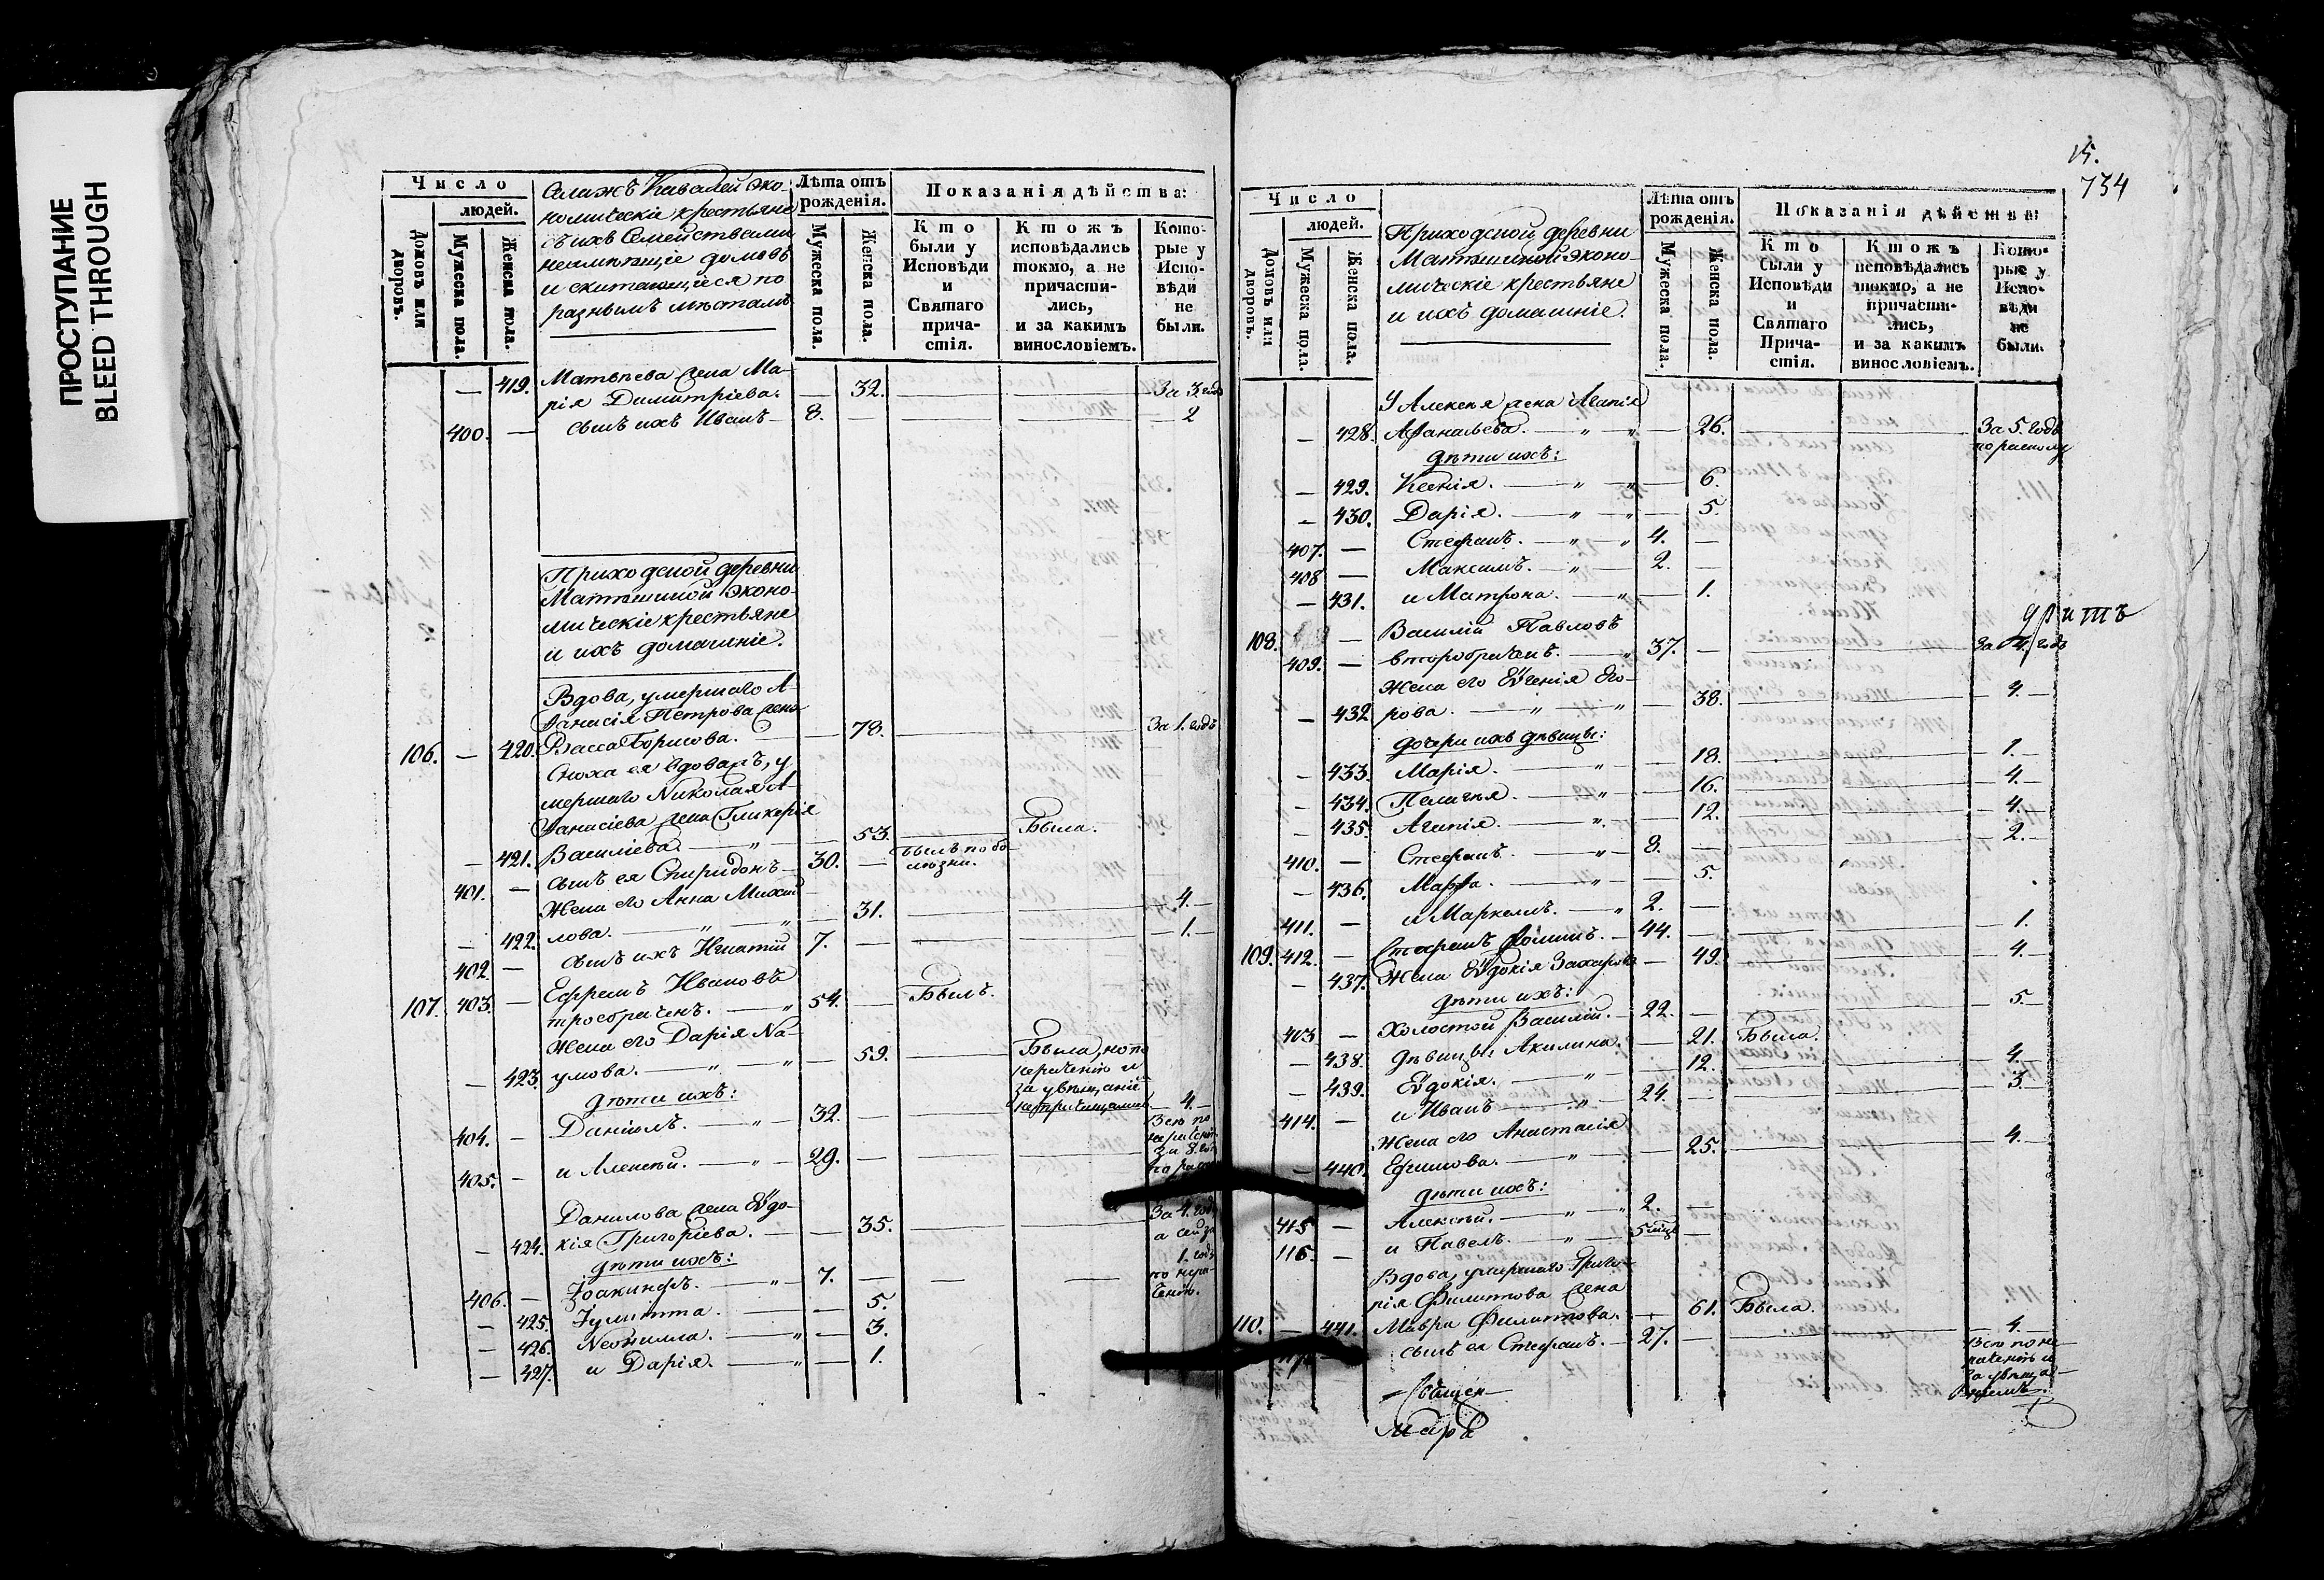 ПРОСТУПАНИЕ
BLEED THROUGH
Число
людей.
Домовъ или дворовъ.
Мужеска пола.
Женска пола.
номическіе крестьяне
съ ихъ Семействами
неимѣющіе домовъ
и скитающіеся по
разнымъ мѣстамъ
Лѣта отъ рожденія.
Мужеска пола.
Женска пола.
Показанія дѣйства:
Кто были у Исповѣди и Святаго причастія.
Ктожъ исповѣдались токмо, а не причастились, и за какимъ винословіемъ.
Которые у Исповѣди не были.
— 419. Матвѣева жена Ма-
рія Димитріева. — 32. За 3 годъ
400. — сынъ ихъ Иванъ — 8. — 2
Приходской деревни
Матюшиной Эконо-
мическіе крестьяне
и ихъ домашніе.
Вдова, умершаго А-
ѳанасія Петрова жена
106. — 420. Васса Борисова. — 78. За 1. годъ
Сноха ея вдова жъ, у
мершаго Николая А-
ѳанасіева жена Гликерія
— 421. Василіева. — 53. Была.
401. — сынъ ея Спиридонъ — 30. — былъ по бо
лѣзни.
Жена его Анна Михай
— 422. лова. — 31. — 4. —
402. — сынъ ихъ Игнатій 7. — 1. —
Ефремъ Ивановъ
107. 403. — троебраченъ. — 54. — Былъ.
Жена его Дарія На-
— 423. умова. — 59. Была, но по
нераченію и
дѣти ихъ:
404. — Даніилъ. — 32. — 4. —
405. — и Алексѣй. — 29. —
Данилова жена Евдо-
— 424. кія Григоріева. — 35. За 4. год
дѣти ихъ:
406. — Іоакинфъ. — 7. —
— 425. Іулитта. — 5.
— 426. Неонилла. — 3.
— 427. и Дарія. — 1.
15.
734
Число
людей.
Домовъ или дворовъ.
Мужеска пола.
Женска пола.
Приходской деревни
Матюшиной Эконо-
мическіе крестьяне
и ихъ домашніе.
Лѣта отъ рожденія.
Мужеска пола.
Женска пола.
Показанія дѣйства:
Кто были у Исповѣди и Святаго Причастія.
Ктожъ исповѣдались токмо, а не причастились, и за какимъ винословіемъ.
Которые у Исповѣди не были.
У Алексѣя жена Агапія
— 428. Аѳанасьева. — 26. За 5. годъ
по расколу
дѣти ихъ:
— 429. Ксенія. — 6.
— 430. Дарія. — 5.
407. — Стефанъ. — 4. —
408 — Максимъ. — 2. —
— 431. и Матрона. — 1.
108. Василій Павловъ
409. — второбраченъ. — 37. — За 4. годъ
Жена его Евгенія Его-
— 432 рова. — 38. — 4. —
дочери ихъ дѣвицы:
— 433. Марія. — 18. — 1. —
— 434. Пелагѣя. — 16. — 4. —
— 435. Агапія. — 12. — 4. —
410. — Стефанъ. — 8. — 2. —
— 436. Марѳа. — 5.
411. — и Маркеллъ. — 2. —
109. 412. — Стефанъ Ѳоминъ. — 44. — 1.
— 437. Жена Евдокія Захарова — 49. — 4.
дѣти ихъ:
403 — холостой Василій. — 22. — 5.
— 438. дѣвицы: Акилина. — 21. Была.
— 439. Евдокія. — 12. — 4. —
414. — и Иванъ — 24. — 3. —
Жена его Анастасія
— 440. Ефимова. — 25. — 4.
дѣти ихъ:
415 — Алексѣй. — 2. —
116. — и Павелъ. — 5 мцъ —
Вдова, умершаго Григо-
рія Филипова жена
110. — 441. Мавра Филипова. — 61. Была.
сынъ ея Стефанъ. — 27. — 4. —